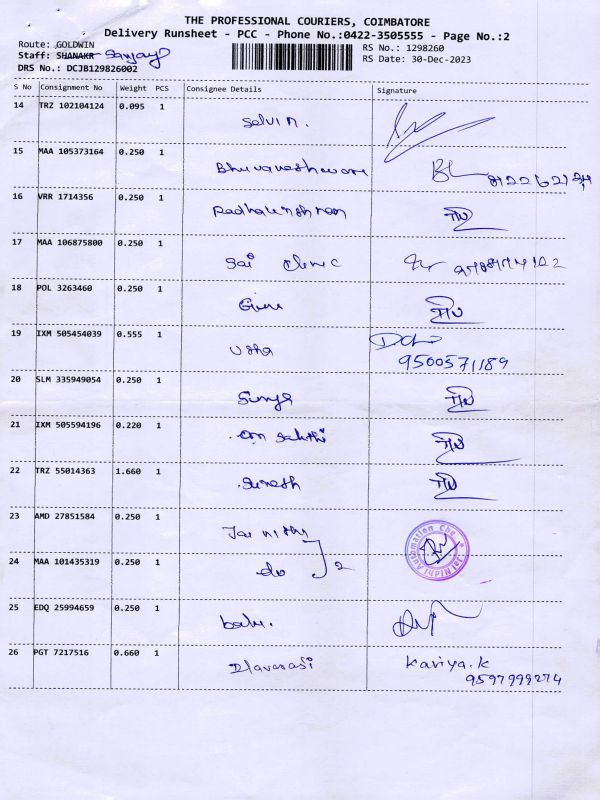 THE PROFESSIONAL COURIERS, COIMBATORE
Delivery Runsheet - PCC - Phone No.:0422-3505555 - Page No.:2
Route: GOLDWIN
RS No.: 1298260
Staff: SHANAKR Sanjay
RS Date: 30-Dec-2023
DRS No.: DCJB129826002
S No Consignment No Weight PCS Consignee Details Signature
14 TRZ 102104124 0.095 1
Selvi n.
15 MAA 105373164 0.250 1
Bhuvaneshwari
16 VRR 1714356 0.250 1
17 MAA 106875800 0.250 1
Sai Clinic
18 POL 3263460 0.250 1
Giri
19 IXM 505454039 0.555 1
Usha
9500571189
20 SLM 335949054 0.250 1
Surya
21 IXM 505594196 0.220 1
Om Sakthi
22 TRZ 55014363 1.660 1
Suresh
23 AMD 27851584 0.250 1
Jai nithi
24 MAA 101435319 0.250 1
do 2
Jai Nidhi Automation Cbe
25 EDQ 25994659 0.250 1
balu.
26 PGT 7217516 0.660 1
Elavarasi
Kaviya.K
9597999274